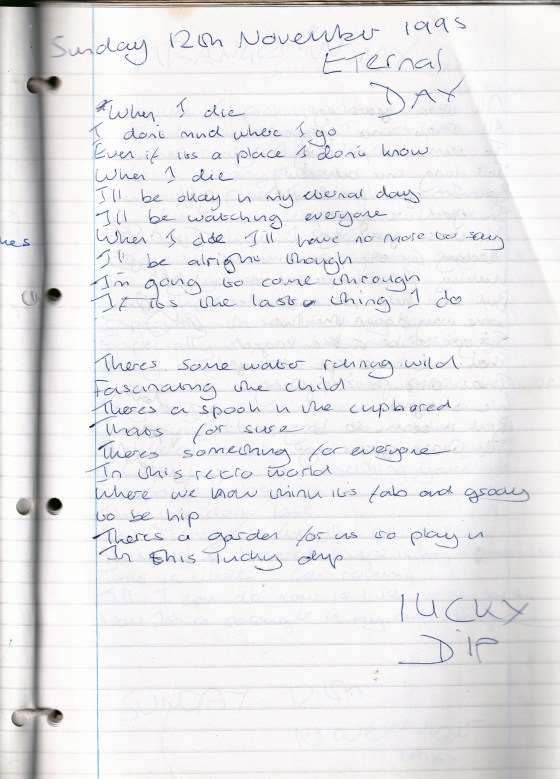 Sunday 12th November 1995
Eternal
DAY
When I die
I don't mind where I go
Even if its a place I don't know
When I die
I'll be okay in my eternal day
I'll be watching everyone
When I die I'll have no more to say
I'll be alright though
I'm going to come through
If its the last thing I do
Theres some water running wild
Fascinating the child
Theres a spook in the cupboard
Thats for sure
Theres something for everyone
In this retro world
Where we know think its fab and groovy
to be hip
There's a garden for us to play in
In this lucky dip
LUCKY
DIP